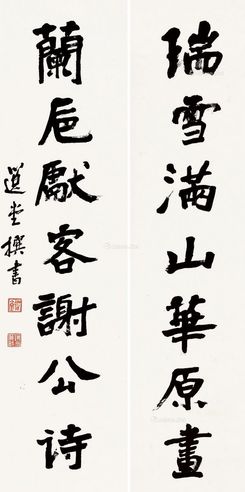 瑞雪滿山華原畫
蘭卮獻客謝公诗
選堂撰書